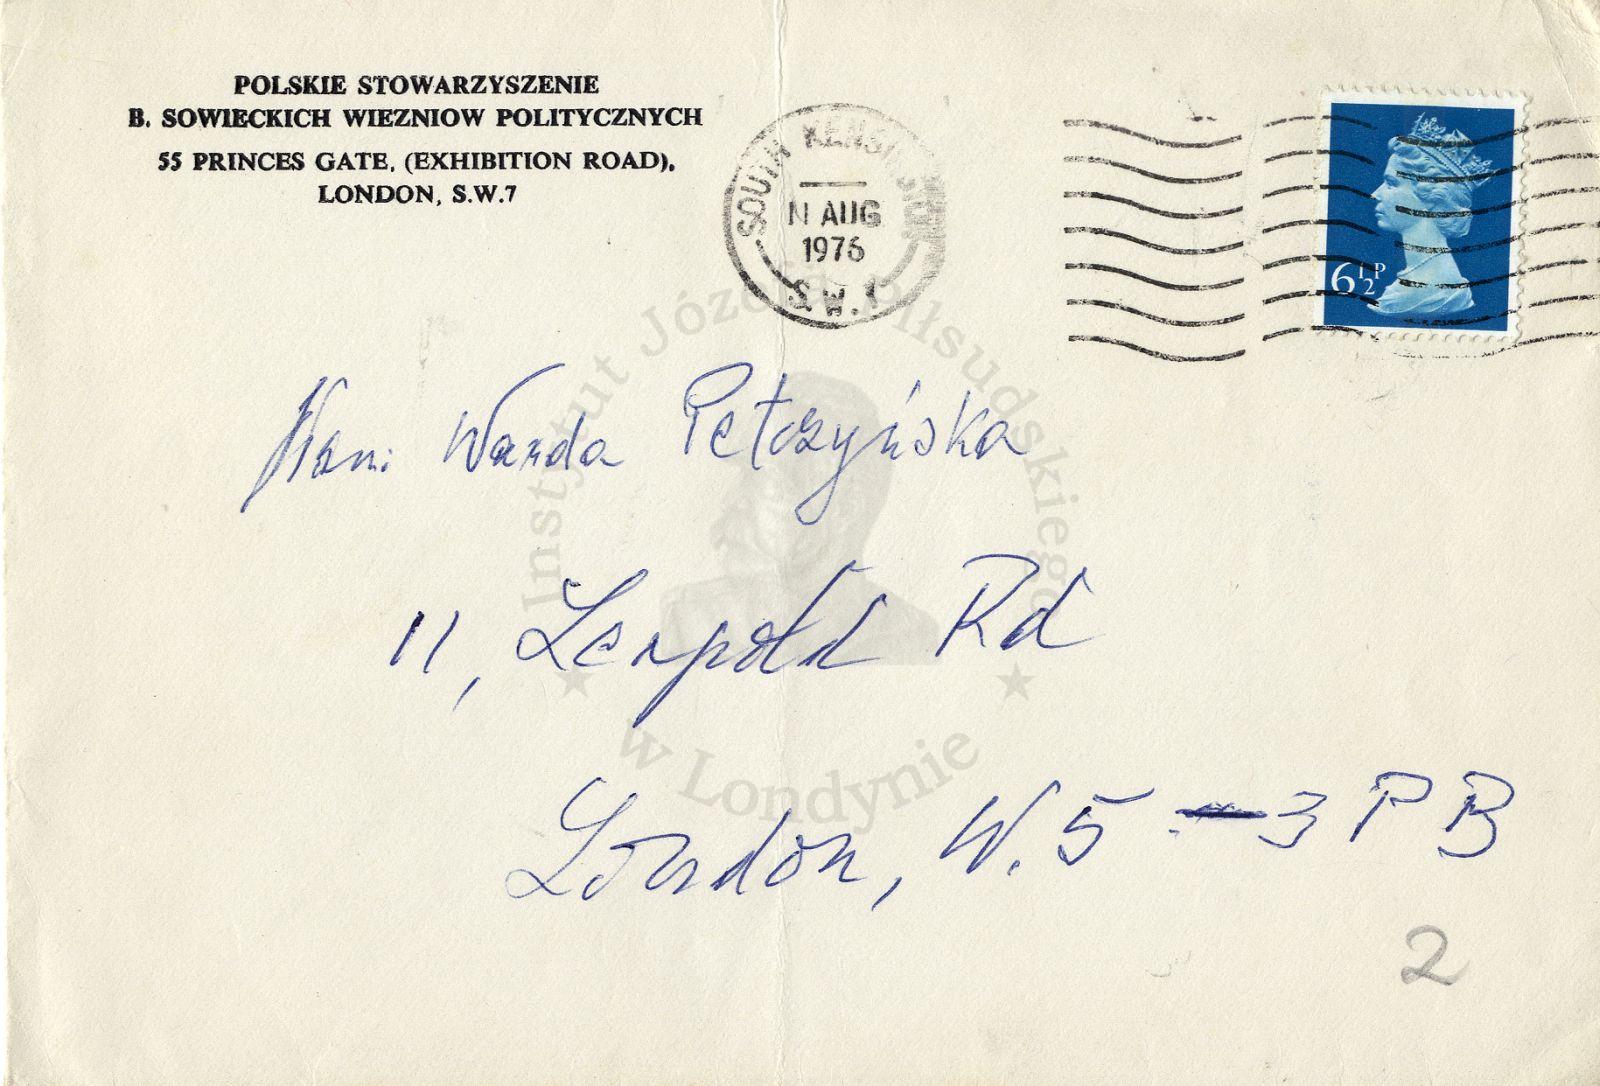 POLSKIE STOWARZYSZENIE
B. SOWIECKICH WIEZNIOW POLITYCZNYCH
55 PRINCES GATE, (EXHIBITION ROAD),
LONDON, S.W.7
SOUTH KENSINGTON
11 AUG
1976
S.W.
6½P
Pani Wanda Pełczyńska
11, Leopold Rd
London, W. 5 - 3 P B
2
Instytut Józefa Piłsudskiego
w Londynie